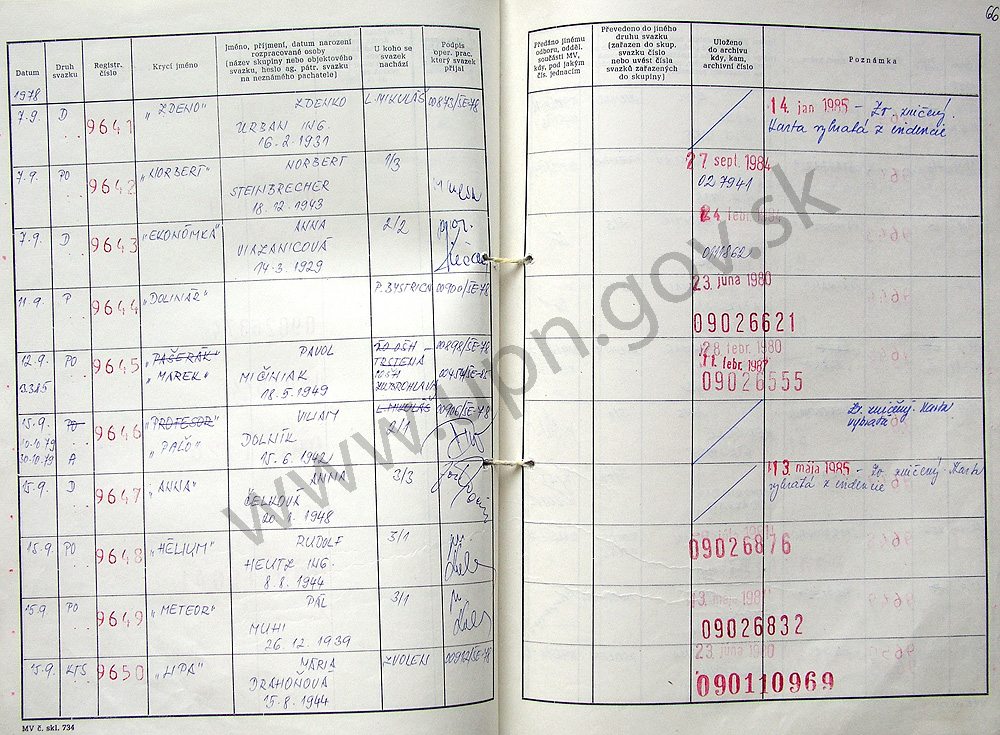 66
Datum
Druh svazku
Registr. číslo
Krycí jméno
Jméno, příjmení, datum narození
rozpracované osoby
(název skupiny nebo objektového
svazku, heslo ag. pátr. svazku
na neznámého pachatele)
U koho se
svazek
nachází
Podpis
oper. prac.
který svazek
přijal
Předáno jinému
odboru, odděl.
součásti MV,
kdy, pod jakým
čís. jednacím
Převedeno do jiného
druhu svazku
(zařazen do skup.
svazku číslo
nebo uvést číslo
svazků zařazených
do skupiny)
Uloženo
do archivu
kdy, kam,
archivní číslo
Poznámka
1978
7.9. D 9641 "ZDENO" ZDENKO L. MIKULÁŠ 00873/ŠE-78
URBAN ING.
16.2.1931
14. jan 1985 - Zv. zničený.
Karta vybratá z evidencie
7.9. PO 9642 "NORBERT" NORBERT 1/3
STEINBRECHER
18.12.1943
27 sept. 1984
027941
7.9. D 9643 "EKONÓMKA" ANNA 2/2
VIAZANICOVÁ
14.3.1929
24 febr.
11.9. P 9644 "DOLINÁR" P. BYSTRICA 00900/ŠE-78
23. júna 1980
09026621
12.9. PO 9645 "PAŠERÁK" PAVOL TO OŠH - 00898/ŠE-78
TRSTENÁ
3.3.85 "MAREK" MIČINIAK
18.5.1949
28 febr. 1980
11. febr. 1987
09026555
15.9. PO 9646 "PROFESOR" VILIAM L. MIKULÁŠ 00906/ŠE-78
10.10.79 "PAĽO" DOLNÍK 2/1
30.10.79 A 15.6.1942
Zv. zničený. Karta
vybratá
15.9. D 9647 "ANNA" ANNA 3/3
ČELKOVÁ
20.1.1948
13. mája 1985 - Zv. zničený Karta
vybratá z evidencie
15.9. PO 9648 "HÉLIUM" RUDOLF 3/1
HEUTZ ING.
8.8.1944
09026876
15.9 PO 9649 "METEOR" PÁL 3/1
MUHI
26.12.1939
13. mája 198
09026832
15.9. KTS 9650 "LIPA" MÁRIA ZVOLEN 00912/ŠE-78
DRAHOŇOVÁ
15.8.1944
23. júna 1980
090110969
MV č. skl. 734
www.upn.gov.sk